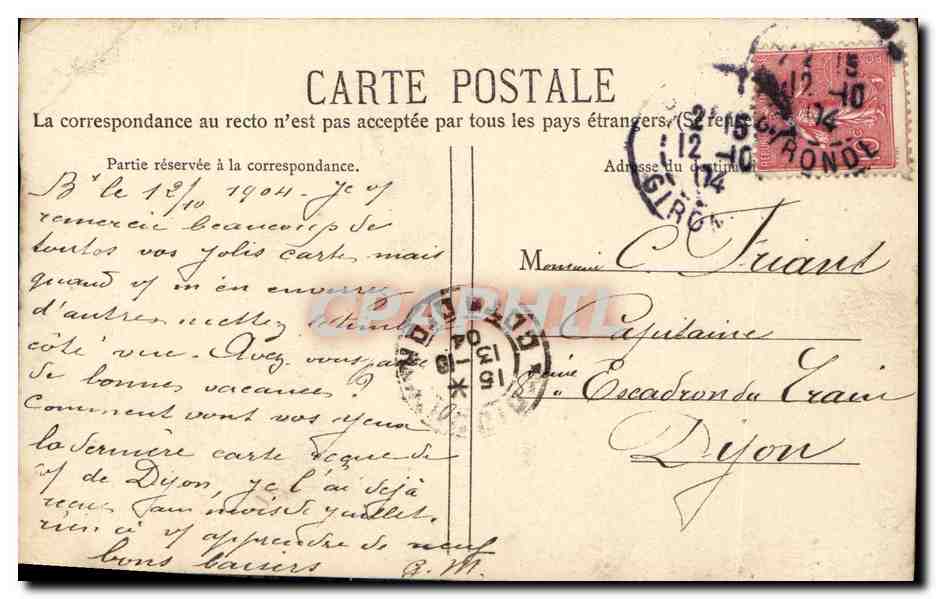 CARTE POSTALE
La correspondance au recto n'est pas acceptée par tous les pays étrangers. (Se rense
Partie réservée à la correspondance.
Adresse du destinat
Bx le 12/10 1904. Je vs
remercie beaucoup de
toutes vos jolis carte mais
quand vs m'en enverrez
d'autres mettez timbre
côté vue. Avez vous passé
de bonnes vacances ?
Comment vont vos yeux
la dernière carte reçue de
vs de Dijon, je l'ai déjà
reçue au mois de juillet.
rien à vs apprendre de neuf
bons baisers G. M.
Monsieur C. Friant
Capitaine
Escadron du Train
Dijon
2 15
12 -10
04
GIRONDE
2 15
12 -10
04
GIRON
CPAPHIL